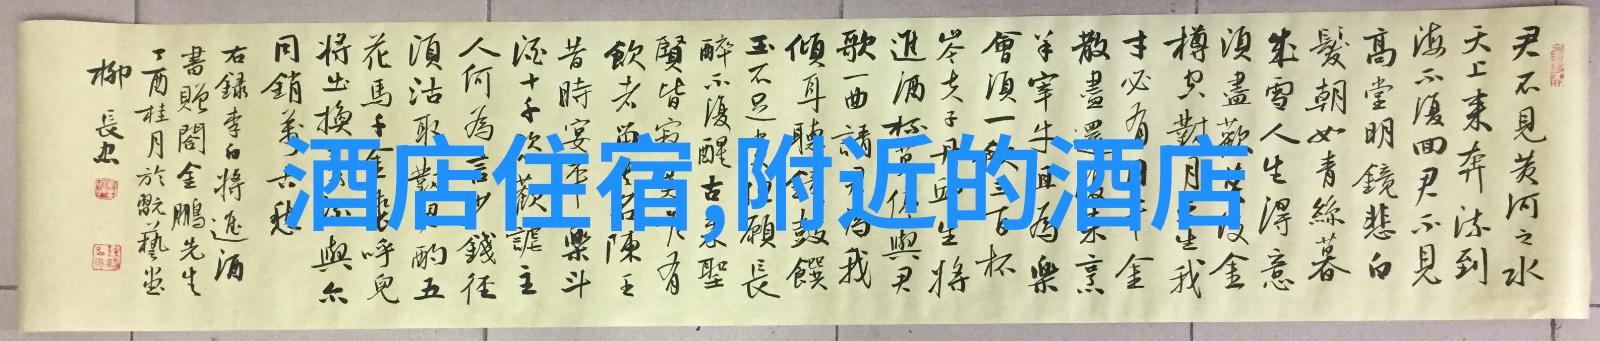 君不見黃河之水
天上來奔流到
海不復回君不見
高堂明鏡悲白
髮朝如青絲暮
成雪人生得意
須盡歡莫使金
樽空對月天生我
才必有用千金
散盡還復來烹
羊宰牛且為樂
會須一飲三百杯
岑夫子丹丘生將
進酒杯莫停與君
歌一曲請君為我
傾耳聽鐘鼓饌
玉不足貴但願長
醉不復醒古來聖
賢皆寂寞惟有
飲者留其名陳王
昔時宴平樂斗
酒十千恣歡謔主
人何為言少錢徑
須沽取對君酌五
花馬千金裘呼兒
將出換美酒與尒
同銷萬古愁
右録李白將進酒
書贈閻金鵬先生
丁酉桂月於翫藝堂
柳長忠
酒店住宿,附近的酒店